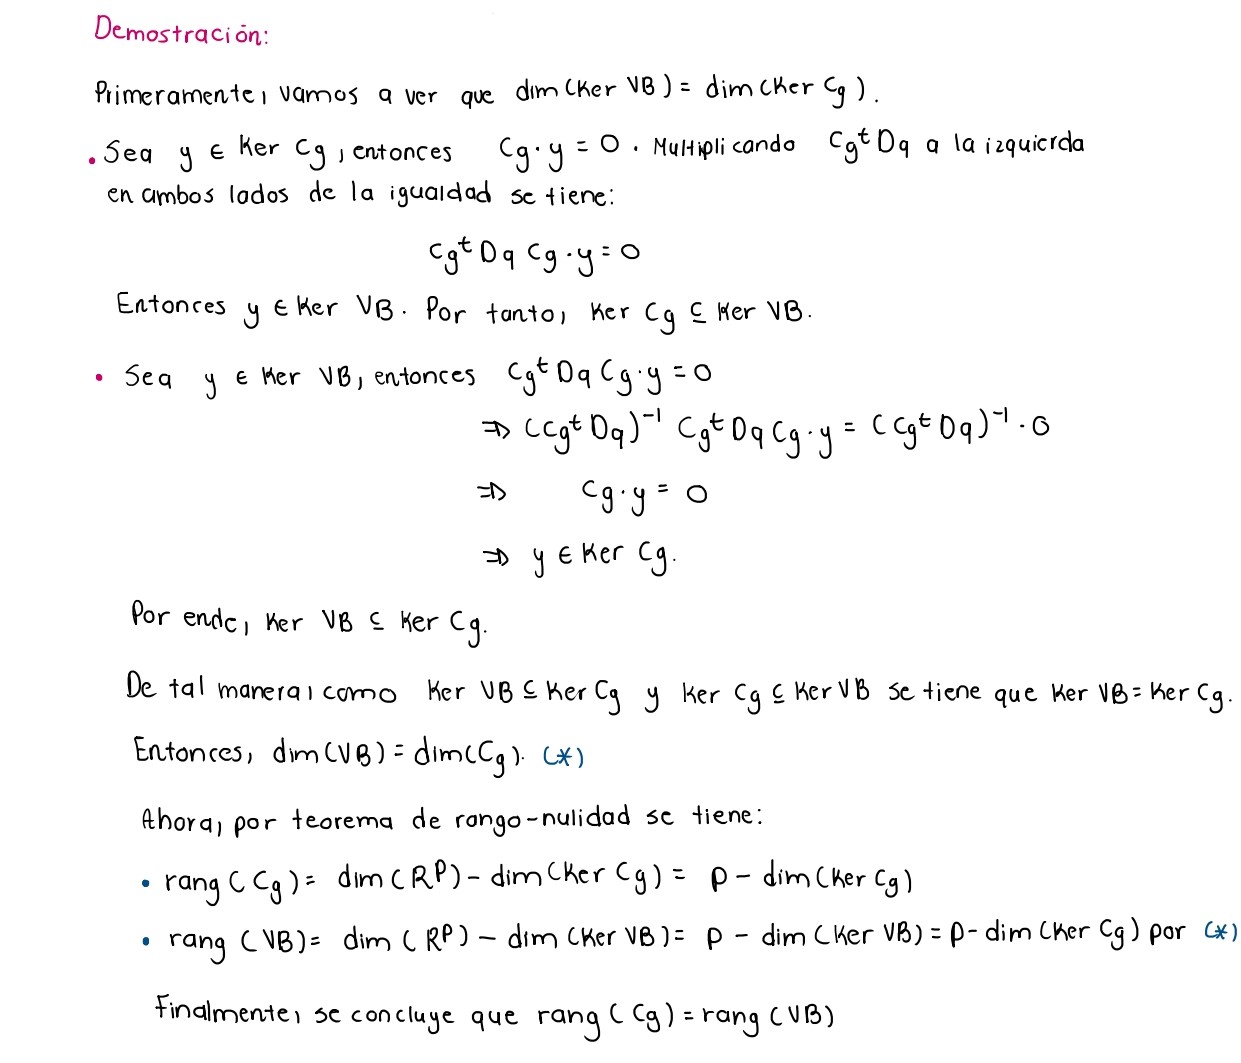 Demostración:
Primeramente, vamos a ver que dim (Ker VB) = dim (Ker Cg).
• Sea y ∈ Ker Cg, entonces Cg · y = 0. Multiplicando Cg^t Dq a la izquierda
en ambos lados de la igualdad se tiene:
Cg^t Dq Cg · y = 0
Entonces y ∈ Ker VB. Por tanto, Ker Cg ⊆ Ker VB.
• Sea y ∈ Ker VB, entonces Cg^t Dq Cg · y = 0
⇒ (Cg^t Dq)^-1 Cg^t Dq Cg · y = (Cg^t Dq)^-1 · 0
⇒ Cg · y = 0
⇒ y ∈ Ker Cg.
Por ende, Ker VB ⊆ Ker Cg.
De tal manera, como Ker VB ⊆ Ker Cg y Ker Cg ⊆ Ker VB se tiene que Ker VB = Ker Cg.
Entonces, dim (VB) = dim (Cg). (*)
Ahora, por teorema de rango-nulidad se tiene:
• rang (Cg) = dim (R^p) - dim (Ker Cg) = p - dim (Ker Cg)
• rang (VB) = dim (R^p) - dim (Ker VB) = p - dim (Ker VB) = p - dim (Ker Cg) por (*)
Finalmente, se concluye que rang (Cg) = rang (VB)